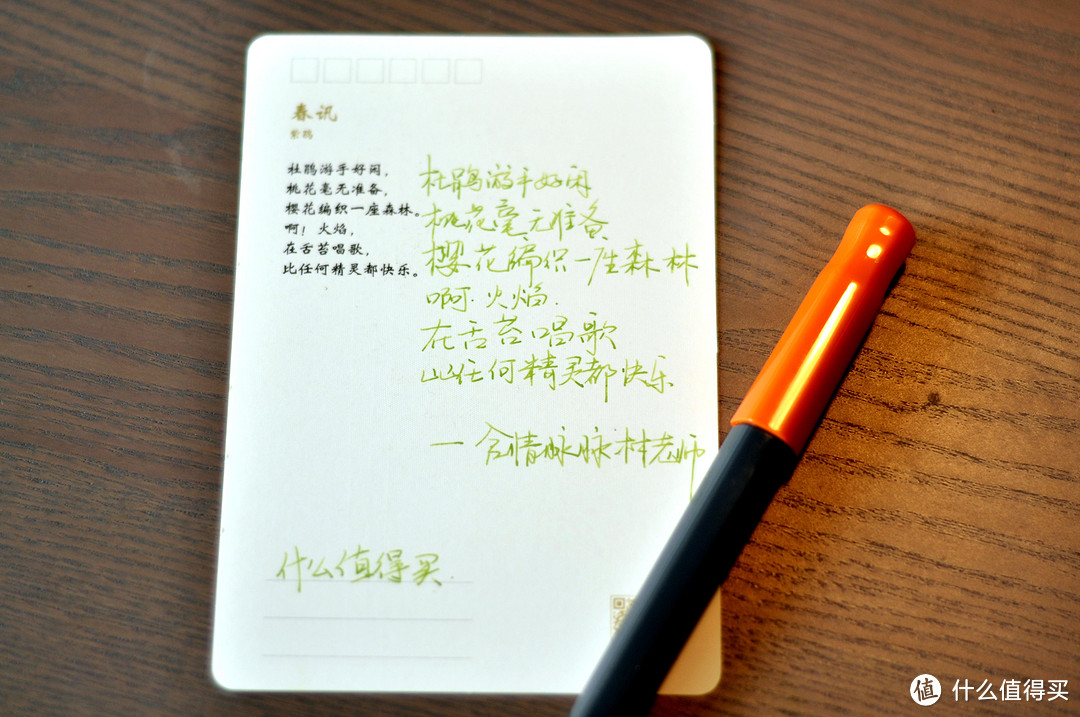 春讯
紫鹃
杜鹃游手好闲，
桃花毫无准备，
樱花编织一座森林。
啊！火焰，
在舌苔唱歌，
比任何精灵都快乐。
杜鹃游手好闲
桃花毫无准备
樱花编织一座森林
啊.火焰.
在舌苔唱歌
比任何精灵都快乐
一含情脉脉林老师
什么值得买.
值 什么值得买